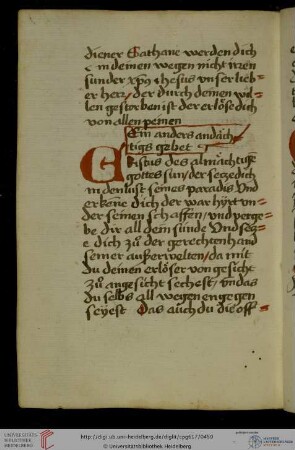 diener Sathane werden dich
in deinen wegen nicht irren
sunder xp̃s ihesus vnser lieb=
er herr/ der durch deinen wil=
len gestorben ist der erlöse dich
von allen peinen
Ein anders andäch
tigs gebet
Cristus des almächtigẽ
gottes sun/ der secze dich
in den lust seines paradis Vnd
erkene dich der war hyrt vn=
der seinen schaffen/ vnd verge=
be dir all dein sunde Vnd secz
e dich zů der gerechten hand
seiner außerwelten/ da mit
du deinen erlöser von gesicht
zů angesicht sechest/ vnd das
du selbs all wegen engegen
seyest Das auch du die off=
UNIVERSITÄTS-
BIBLIOTHEK
HEIDELBERG
http://digi.ub.uni-heidelberg.de/diglit/cpg447/0450
© Universitätsbibliothek Heidelberg